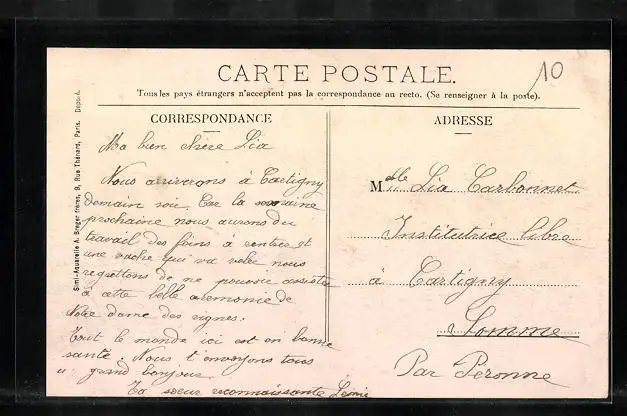 CARTE POSTALE.
10
Tous les pays étrangers n'acceptent pas la correspondance au recto. (Se renseigner à la poste).
CORRESPONDANCE
Ma bien chère Lia
Nous arriverons à Cartigny
demain soir. Car la semaine
prochaine nous aurons du
travail des foins à rentrer et
une vache qui va vêler nous
regrettons de ne pouvoir assister
à cette belle ceremonie de
Notre dame des vignes.
Tout le monde ici est en bonne
santé. Nous t'envoyons tous
un grand bonjour.
Ta soeur reconnaissante
ADRESSE
Mdelle Lia Carbonnet
Institutrice libre
à Cartigny
Somme
Par Péronne
Simi-Aquarelle A. Breger frères, 9, Rue Thénard, Paris. Déposé.